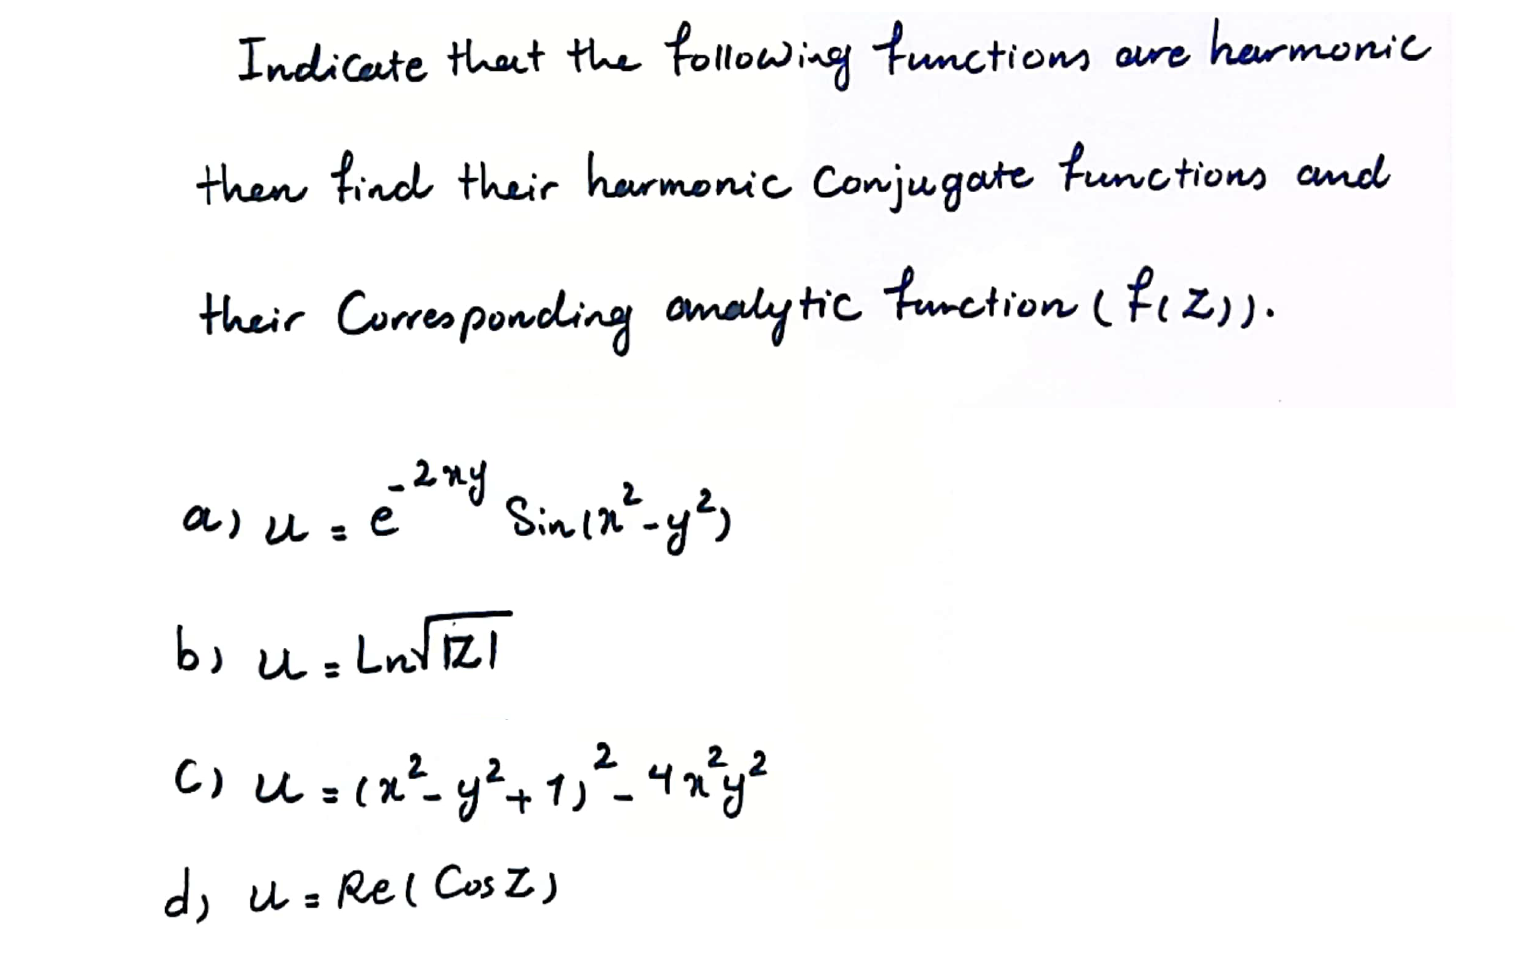 Indicate that the following functions are harmonic
then find their harmonic conjugate functions and
their Corresponding analytic function (f(Z)).
a) u = e^{-2xy} Sin(x²-y²)
b) u = Ln√|Z|
C) u = (x²-y²+1)²-4x²y²
d) u = Re( Cos Z)